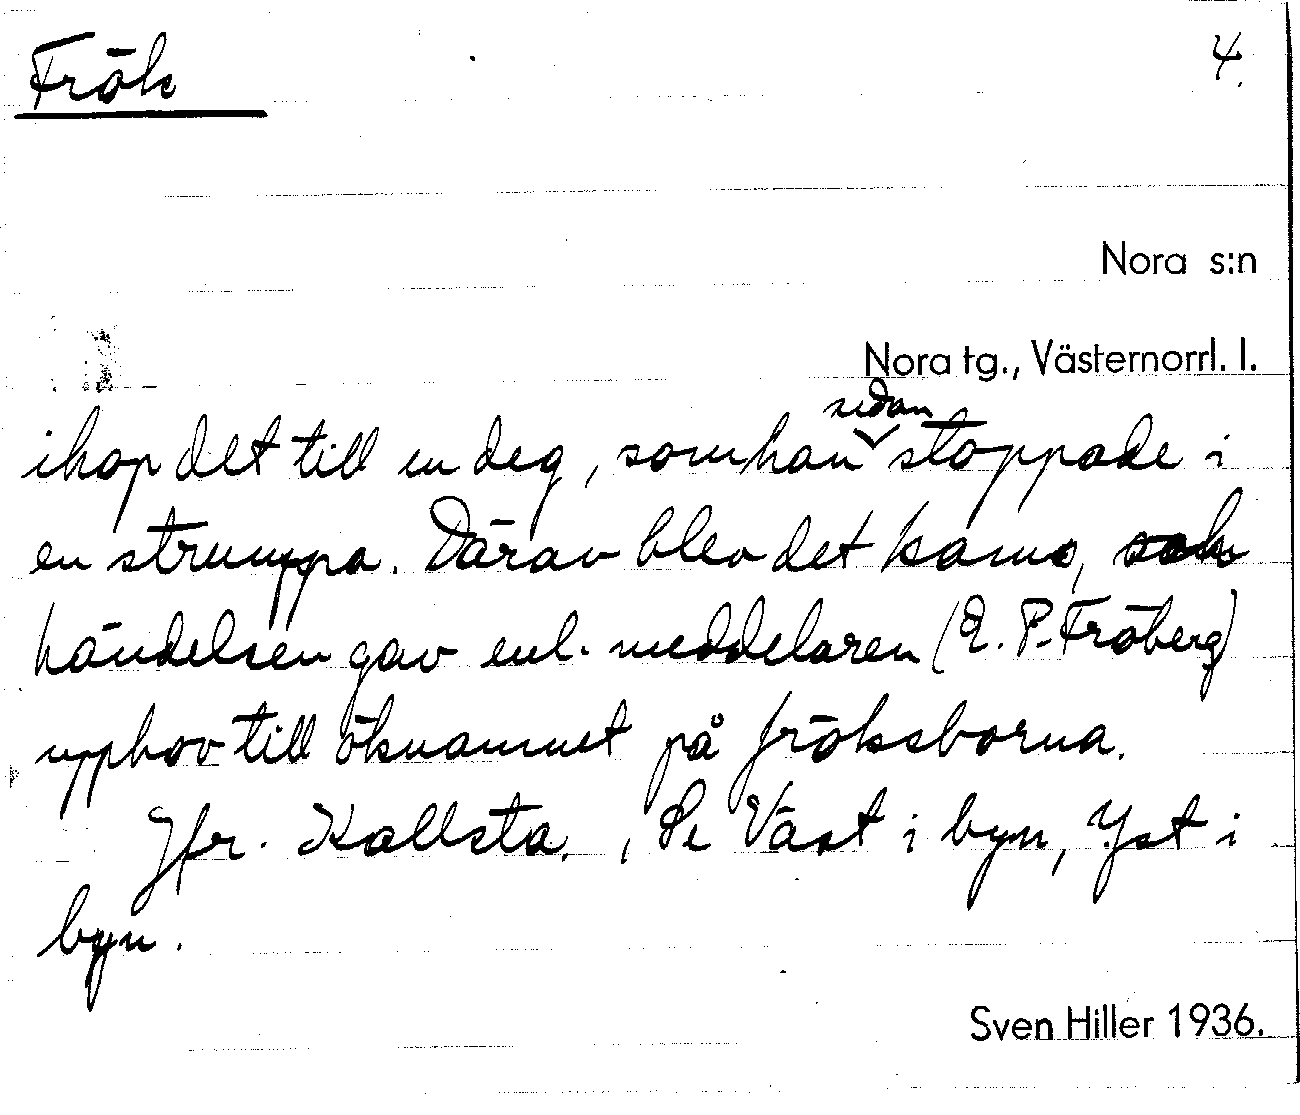 Frök
4.
Nora s:n
Nora tg., Västernorrl. l.
ihop det till en deg, som han sedan stoppade i
en strumpa. Därav blev det kams, och
händelsen gav enl. meddelaren (E. P. Fröberg)
upphov till öknamnet på fröksborna.
Jfr. Kallsta. , Se Väst i byn, Yst i
byn.
Sven Hiller 1936.